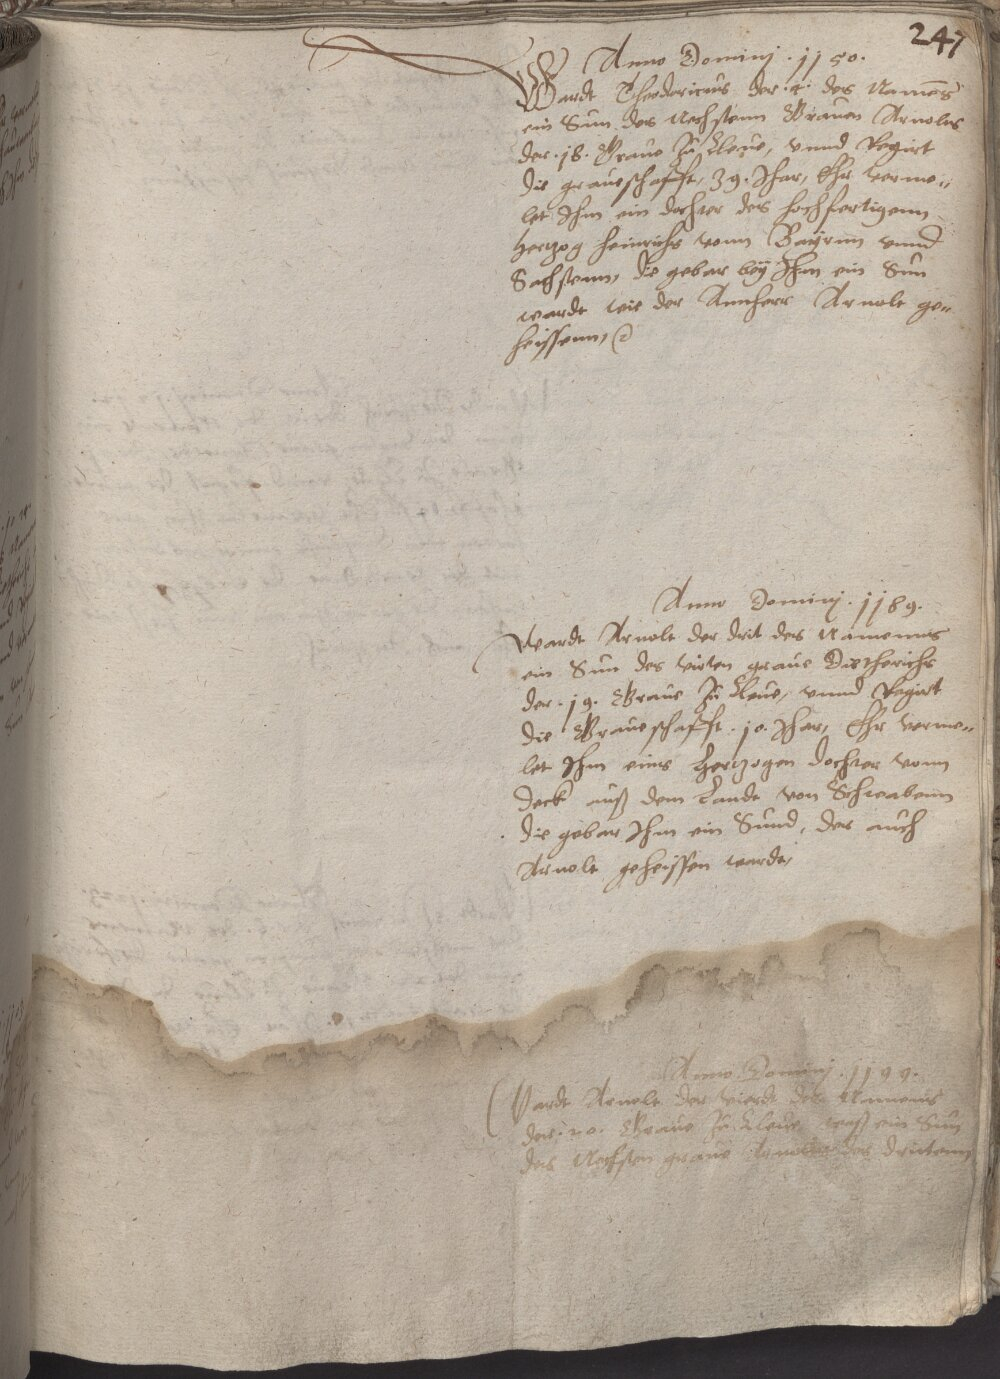 247
Anno Dominj . 1150.
Wardt Theodericus der .4. des Namens
ein Sun des Nechstenn Grauen Arnoldts
der .18. Graue zu Cleue, vnnd Regirt
die graueschafft, 39. Jhar, Ehr verme„
let Jhm ein dochter des hochfertigenn
Hertzog Heinrichs vonn Bayrnn vnnd
Sachssenn, die gebar bey Jhm ein Sun
wardt wie der Annherr Arnolt ge„
heissenn,
Anno Dominj . 1189.
Wardt Arnolt der drit des Namenns
ein Sun des virten graue Dietherichs
der .19. Graue zu Cleue, vnnd Regirt
die Graueschafft .10. Jhar, Ehr verme„
let Jhm eins Hertzogen dochter vonn
Deck auß dem Lande von Schwabenn
die gebar Jhm ein Sund, der auch
Arnolt geheissen wardt,
Anno Dominj . 1199.
Wardt Arnolt der vierdt des Namenns
der .20. Graue zu Cleue, waß ein Sun
des Nechsten graue Arnolts des dritenn